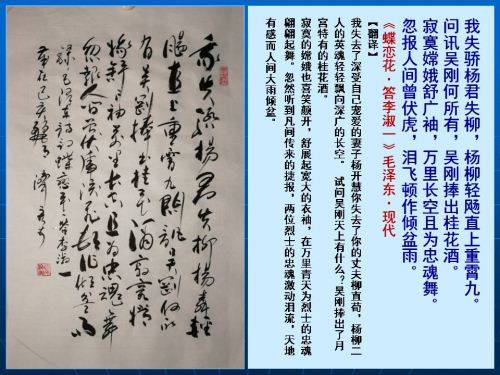 我失骄杨君失柳，杨柳轻飏直上重霄九。
问讯吴刚何所有，吴刚捧出桂花酒。
寂寞嫦娥舒广袖，万里长空且为忠魂舞。
忽报人间曾伏虎，泪飞顿作倾盆雨。
《蝶恋花·答李淑一》毛泽东·现代
【翻译】
我失去了深受自己宠爱的妻子杨开慧你失去了你的丈夫柳直荀，杨柳二
人的英魂轻轻飘向深广的长空。 试问吴刚天上有什么？吴刚捧出了月
宫特有的桂花酒。
寂寞的嫦娥也喜笑颜开，舒展起宽大的衣袖，在万里青天为烈士的忠魂
翩翩起舞。忽然听到凡间传来的捷报，两位烈士的忠魂激动泪流，天地
有感而人间大雨倾盆。
我失骄杨君失柳杨柳轻
飏直上重霄九問訊吴刚何所
有吴刚捧出桂花酒寂寞嫦
娥舒广袖万里长空且为忠魂舞
忽报人间曾伏虎泪飞顿作倾盆雨
词蝶恋花答李淑一